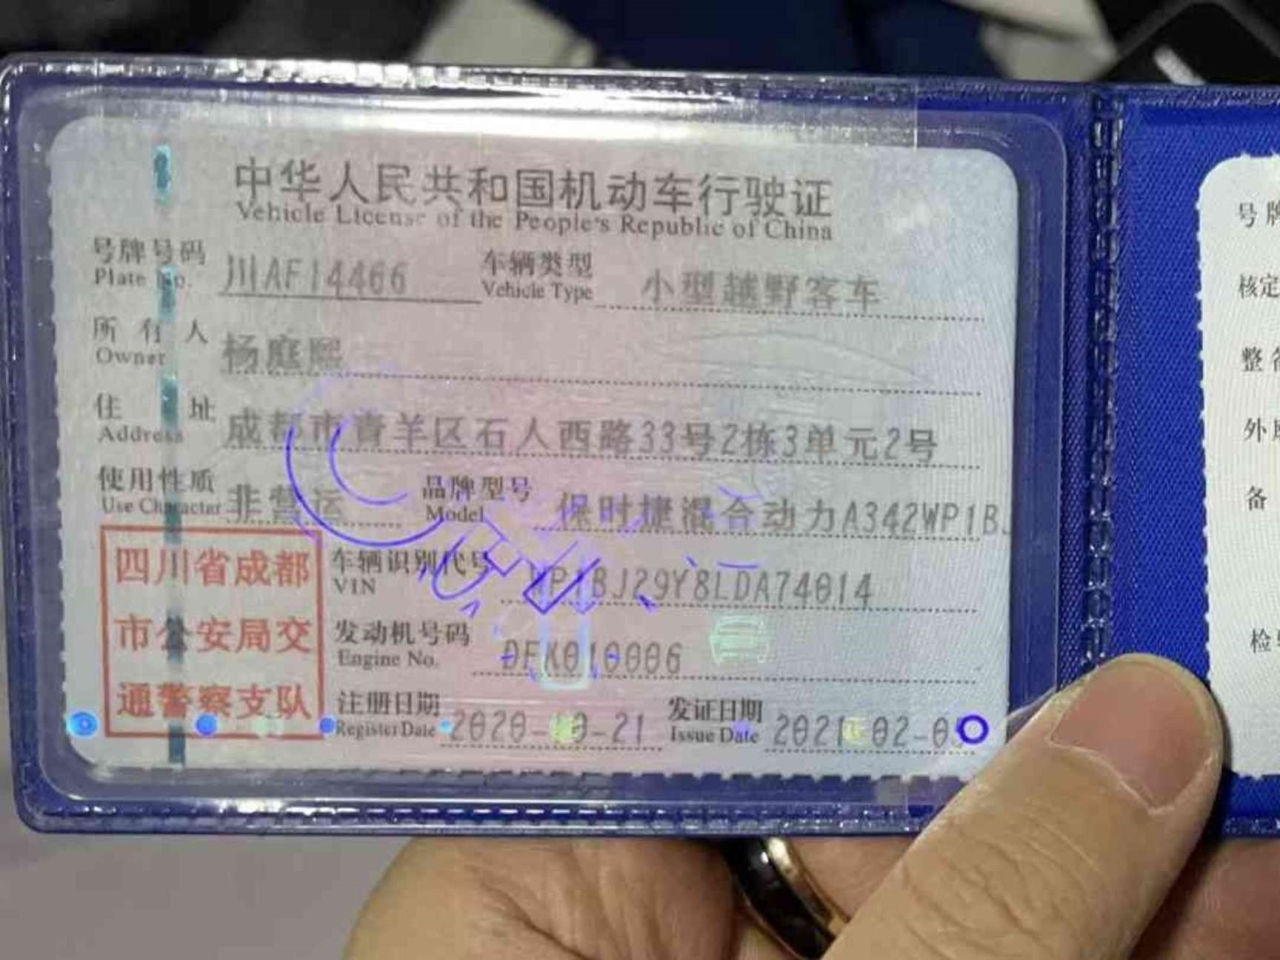 中华人民共和国机动车行驶证
Vehicle License of the People's Republic of China
号牌号码 川AF14466 车辆类型 小型越野客车
Plate No. Vehicle Type
所有人 杨庭熙
Owner
住址 成都市青羊区石人西路33号2栋3单元2号
Address
使用性质 非营运 品牌型号 保时捷混合动力A342WP1BJ
Use Character Model
四川省成都
市公安局交
通警察支队
车辆识别代号 WP1BJ29Y8LDA74014
VIN
发动机号码 DFK010006
Engine No.
注册日期 2020-10-21 发证日期 2021-02-05
Register Date Issue Date
号牌
核定
整备
外
备
检